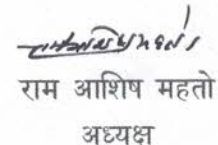 राम आशिष महतो
अध्यक्ष